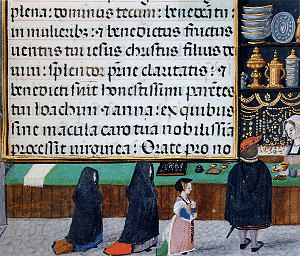 plena: dominus tecum: benedicta tu
in mulieribꝰ: ⁊ benedictus fructus
uentris tui iesus christus filius dei
uiui: splendor prīne claritatis: ⁊
benedicti sint honestissimi parētes
tui ioachim ⁊ anna: ex quibus
sine macula caro tua nobilissima
processit uirginea: Orate pro no